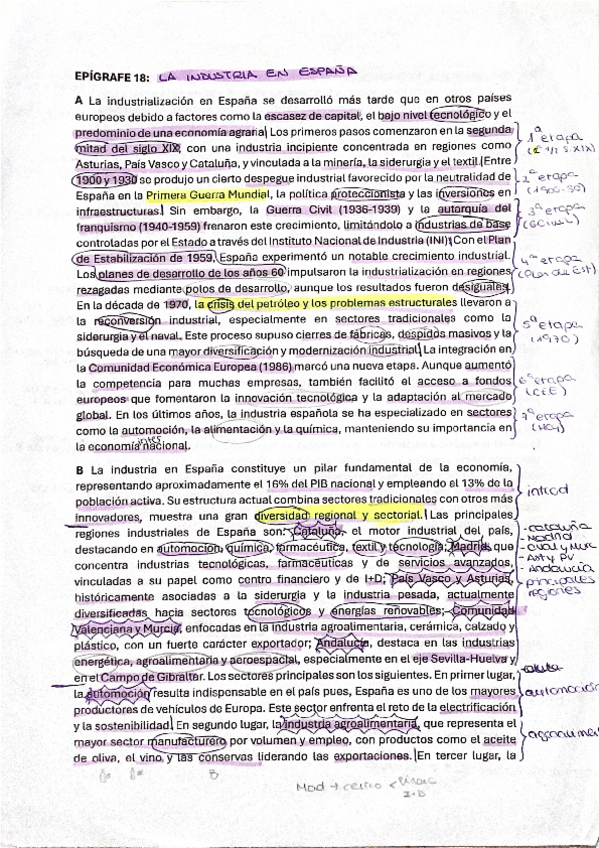 EPÍGRAFE 18: LA INDUSTRIA EN ESPAÑA
A La industrialización en España se desarrolló más tarde que en otros países
europeos debido a factores como la escasez de capital, el bajo nivel tecnológico y el
predominio de una economía agraria. Los primeros pasos comenzaron en la segunda
mitad del siglo XIX, con una industria incipiente concentrada en regiones como
Asturias, País Vasco y Cataluña, y vinculada a la minería, la siderurgia y el textil. Entre
1900 y 1930 se produjo un cierto despegue industrial favorecido por la neutralidad de
España en la Primera Guerra Mundial, la política proteccionista y las inversiones en
infraestructuras. Sin embargo, la Guerra Civil (1936-1939) y la autarquía del
franquismo (1940-1959) frenaron este crecimiento, limitándolo a industrias de base
controladas por el Estado a través del Instituto Nacional de Industria (INI). Con el Plan
de Estabilización de 1959, España experimentó un notable crecimiento industrial.
Los planes de desarrollo de los años 60 impulsaron la industrialización en regiones
rezagadas mediante polos de desarrollo, aunque los resultados fueron desiguales.
En la década de 1970, la crisis del petróleo y los problemas estructurales llevaron a
la reconversión industrial, especialmente en sectores tradicionales como la
siderurgia y el naval. Este proceso supuso cierres de fábricas, despidos masivos y la
búsqueda de una mayor diversificación y modernización industrial. La integración en
la Comunidad Económica Europea (1986) marcó una nueva etapa. Aunque aumentó
la competencia para muchas empresas, también facilitó el acceso a fondos
europeos que fomentaron la innovación tecnológica y la adaptación al mercado
global. En los últimos años, la industria española se ha especializado en sectores
como la automoción, la alimentación y la química, manteniendo su importancia en
la economía nacional.
inter
1ª etapa
2ª etapa
(1900-30)
3ª etapa
4ª etapa
(Plan de Est)
5ª etapa
(1970)
6ª etapa
(CEE)
7ª etapa
(Hoy)
B La industria en España constituye un pilar fundamental de la economía,
representando aproximadamente el 16% del PIB nacional y empleando el 13% de la
población activa. Su estructura actual combina sectores tradicionales con otros más
innovadores, muestra una gran diversidad regional y sectorial. Las principales
regiones industriales de España son: Cataluña, el motor industrial del país,
destacando en automoción, química, farmacéutica, textil y tecnología; Madrid, que
concentra industrias tecnológicas, farmacéuticas y de servicios avanzados,
vinculadas a su papel como centro financiero y de I+D; País Vasco y Asturias,
históricamente asociadas a la siderurgia y la industria pesada, actualmente
diversificadas hacia sectores tecnológicos y energías renovables; Comunidad
Valenciana y Murcia, enfocadas en la industria agroalimentaria, cerámica, calzado y
plástico, con un fuerte carácter exportador; Andalucía, destaca en las industrias
energética, agroalimentaria y aeroespacial, especialmente en el eje Sevilla-Huelva y
en el Campo de Gibraltar. Los sectores principales son los siguientes. En primer lugar,
la automoción resulta indispensable en el país pues, España es uno de los mayores
productores de vehículos de Europa. Este sector enfrenta el reto de la electrificación
y la sostenibilidad. En segundo lugar, la industria agroalimentaria, que representa el
mayor sector manufacturero por volumen y empleo, con productos como el aceite
de oliva, el vino y las conservas liderando las exportaciones. En tercer lugar, la
introd
- Cataluña
- Madrid
- Ast y PV
- Andalucía
principales
regiones
automoción